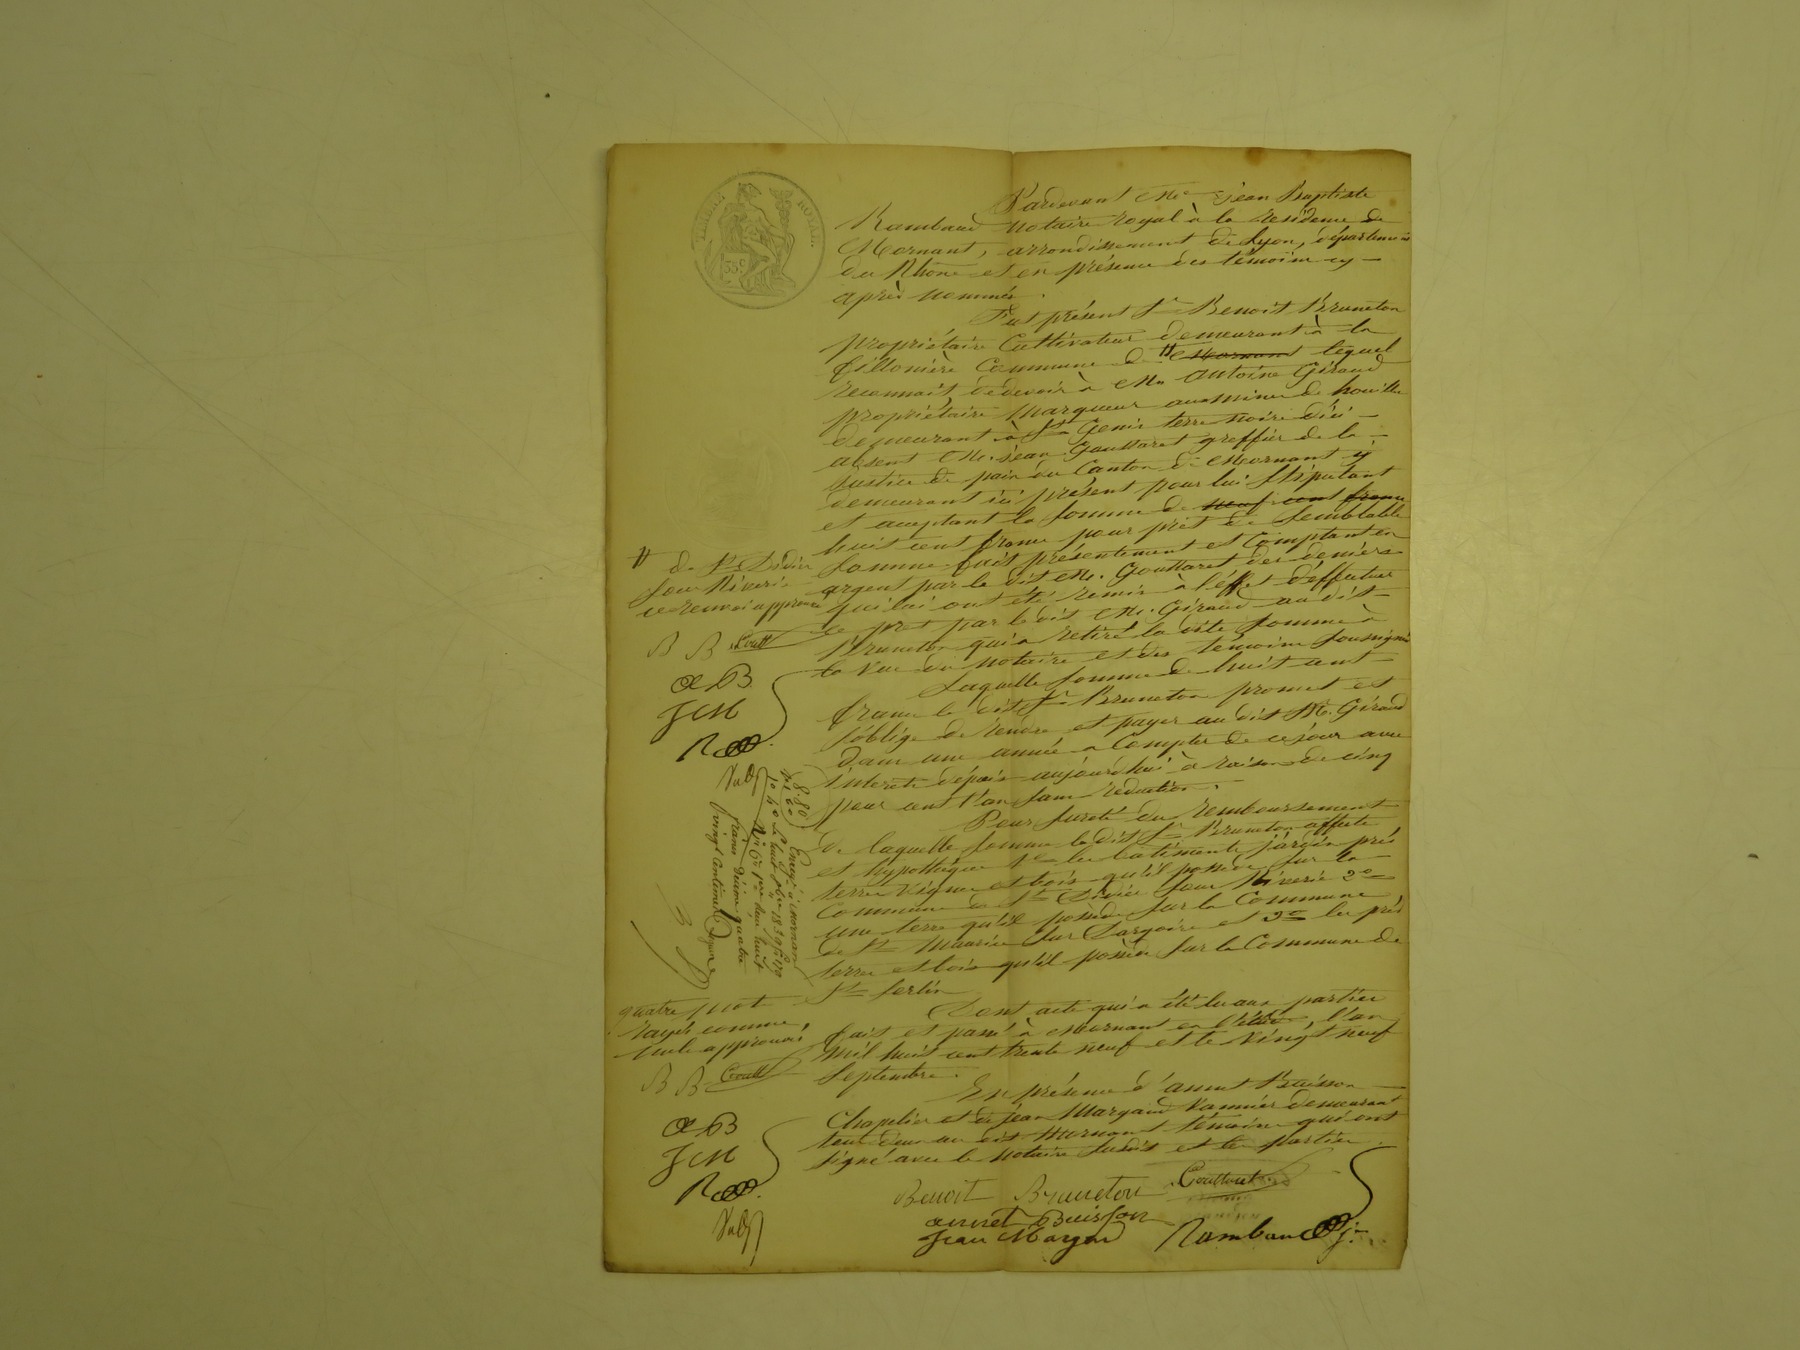 TIMBRE ROYAL
35c
Pardevant Me Jean Baptiste
Rambaud Notaire royal à la résidence de
Mornant, arrondissement de Lyon, département
du Rhône et en présence des témoins cy-
après nommés.
Fut présent Sr Benoit Bruneton
propriétaire Cultivateur demeurant à la
fillonière Commune de # Mornant lequel
reconnait, de devoir à Mr Antoine Giraud
propriétaire Marqueur aux mines de houille
demeurant à St Genis terre noire d'ici
absent Mr. Jean Gouttaret greffier de la
Justice de paix du Canton de Mornant y
demeurant ici présent pour lui stipulant
et acceptant la somme de neuf cent francs
huit cent francs pour prêt de semblable
somme fait présentement et comptant en
argent par le dit Mr. Gouttaret des deniers
qui lui ont été remis à l'effet d'effectuer
ce prêt par le dit Mr. Giraud au dit
Bruneton qui a retiré la dite somme à
la vue du Notaire et des témoins soussignés
Laquelle somme de huit cent
francs le dit Sr Bruneton promet et
s'oblige de rendre et payer au dit Mr. Giraud
dans une année à compter de ce jour avec
interets depuis aujourd'hui à raison de cinq
pour cent l'an sans réduction.
Pour sureté du remboursement
de laquelle somme le dit Sr Bruneton affecte
et hypothèque 1o les batiments jardin prés
terres vignes et bois qu'il possède sur la
Commune de St Didier sous Riverie 2o
une terre qu'il possède sur la Commune
de St Maurice sur Dargoire et 3o les prés
terres et bois qu'il possède sur la Commune de
St Sorlin
Dont acte qui a été lu aux parties
fait et passé à Mornant en l'étude, l'an
mil huit cent trente neuf et le vingt neuf
septembre.
En présence d'annet Buisson
Chapelier et de Jean Margand Vannier demeurant
tous deux au dit Mornant témoins qui ont
signé avec le Notaire susdit et les parties.
# de St Didier
sous Riverie
ce renvoi approuvé
B B Goutt
AB
JM
R
8.80
Enreg.é à Mornant
francs décime quatre
vingt centimes
quatre mot
rayés comme
nuls approuvés
B B Goutt
AB
JM
R
Benoit Bruneton Gouttaret
annet Buisson
Jean Margan Rambaud